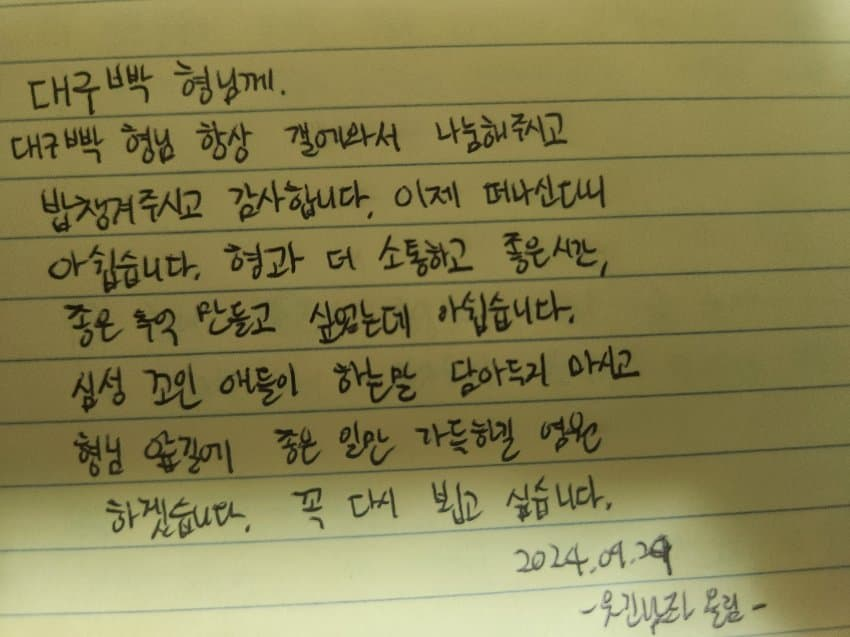 대구빡 형님께.
대구빡 형님 항상 갤에와서 나눔해주시고
밥챙겨주시고 감사합니다. 이제 떠나신다니
아쉽습니다. 형과 더 소통하고 좋은시간,
좋은 추억 만들고 싶었는데 아쉽습니다.
심성 꼬인 애들이 하는말 담아두지 마시고
형님 앞길에 좋은 일만 가득하길 염원
하겠습니다. 꼭 다시 뵙고 싶습니다.
2024.09.29
-웃긴남좌 올림-